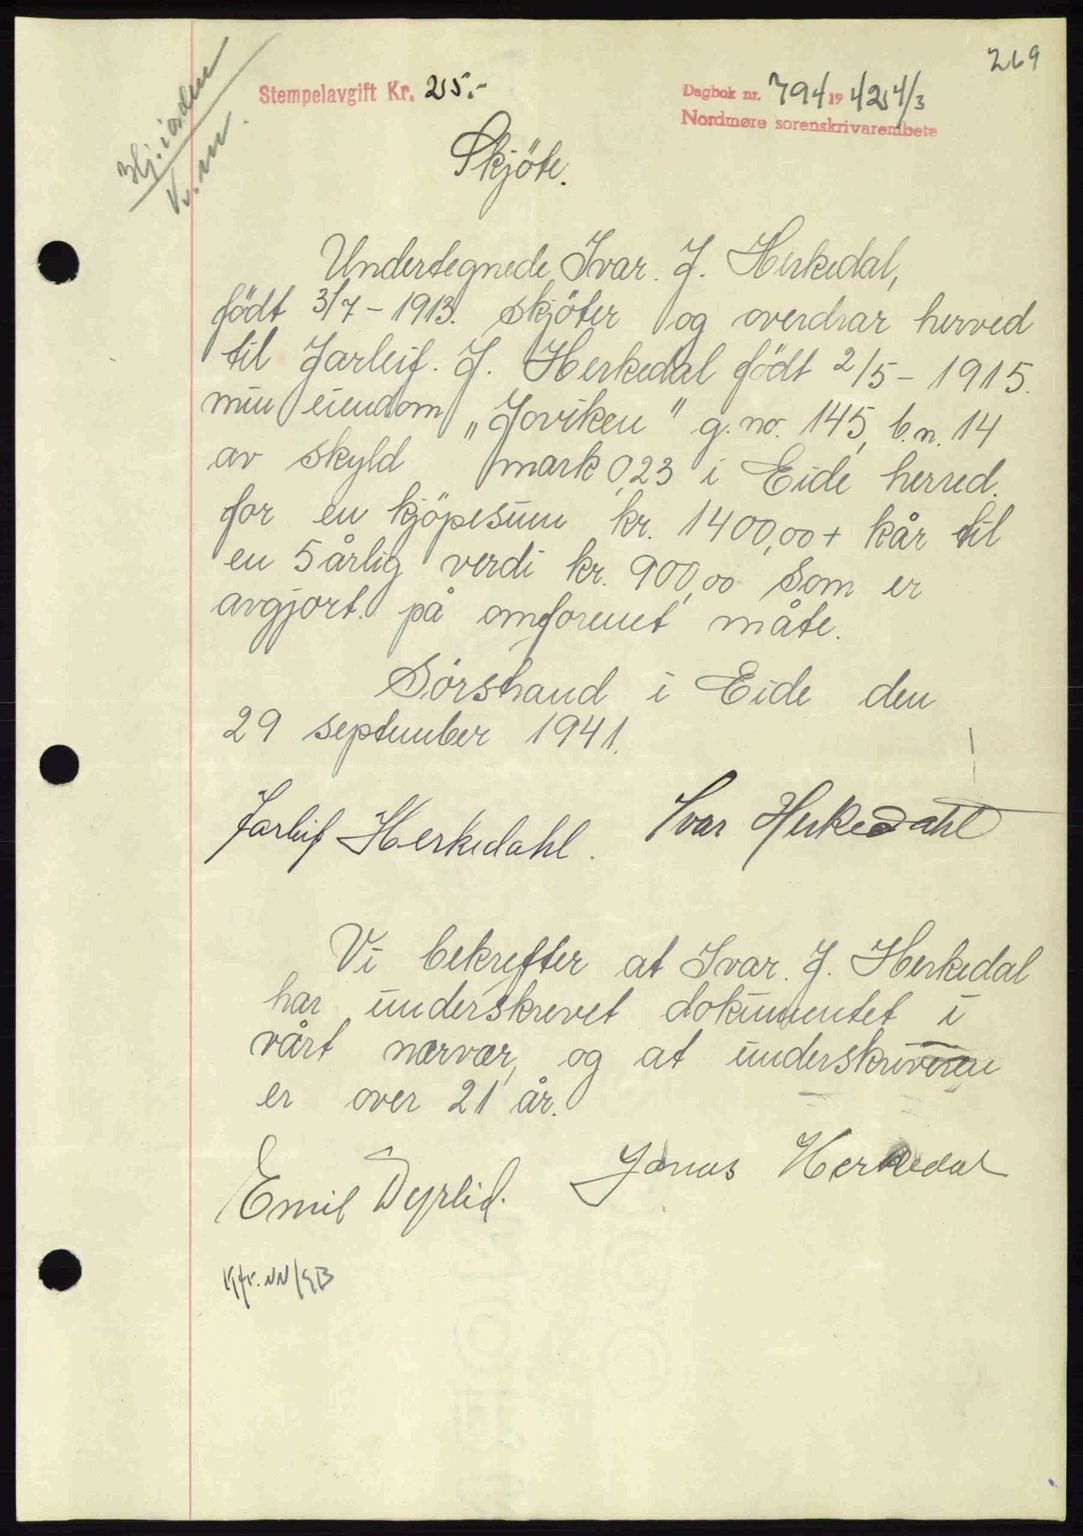 269
Stempelavgift Kr. 25.-
Dagbok nr. 794 1942 4/3
Nordmøre sorenskrivarembete
Hj. i orden
Skjöte.
Undertegnede Ivar. J. Herkedal,
födt 3/7 - 1913. skjöter og overdrar herved
til Jarleif. J. Herkedal födt 2/5 - 1915.
min eiendom „Joviken" g.no. 145, b.n. 14
av skyld mark 0,23 i Eide herred.
for en kjöpesum kr. 1400,00 + kår til
en 5 årlig verdi kr. 900,00 som er
avgjort. på omforenet måte.
Sörstrand i Eide den
29 september 1941.
Jarleif Herkedahl. Ivar Herkedahl
Vi bekrefter at Ivar. J. Herkedal
har underskrevet dokumentet i
vårt nærvær, og at underskriveren
er over 21 år.
Emil Dyrlid. Jonas Herkedal
Kfr. NN/GB